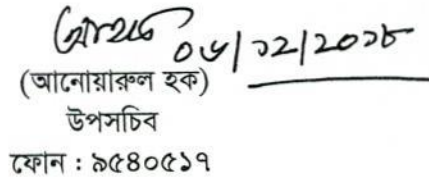 ০৬/১২/২০১৮
(আনোয়ারুল হক)
উপসচিব
ফোন : ৯৫৪০৫১৭